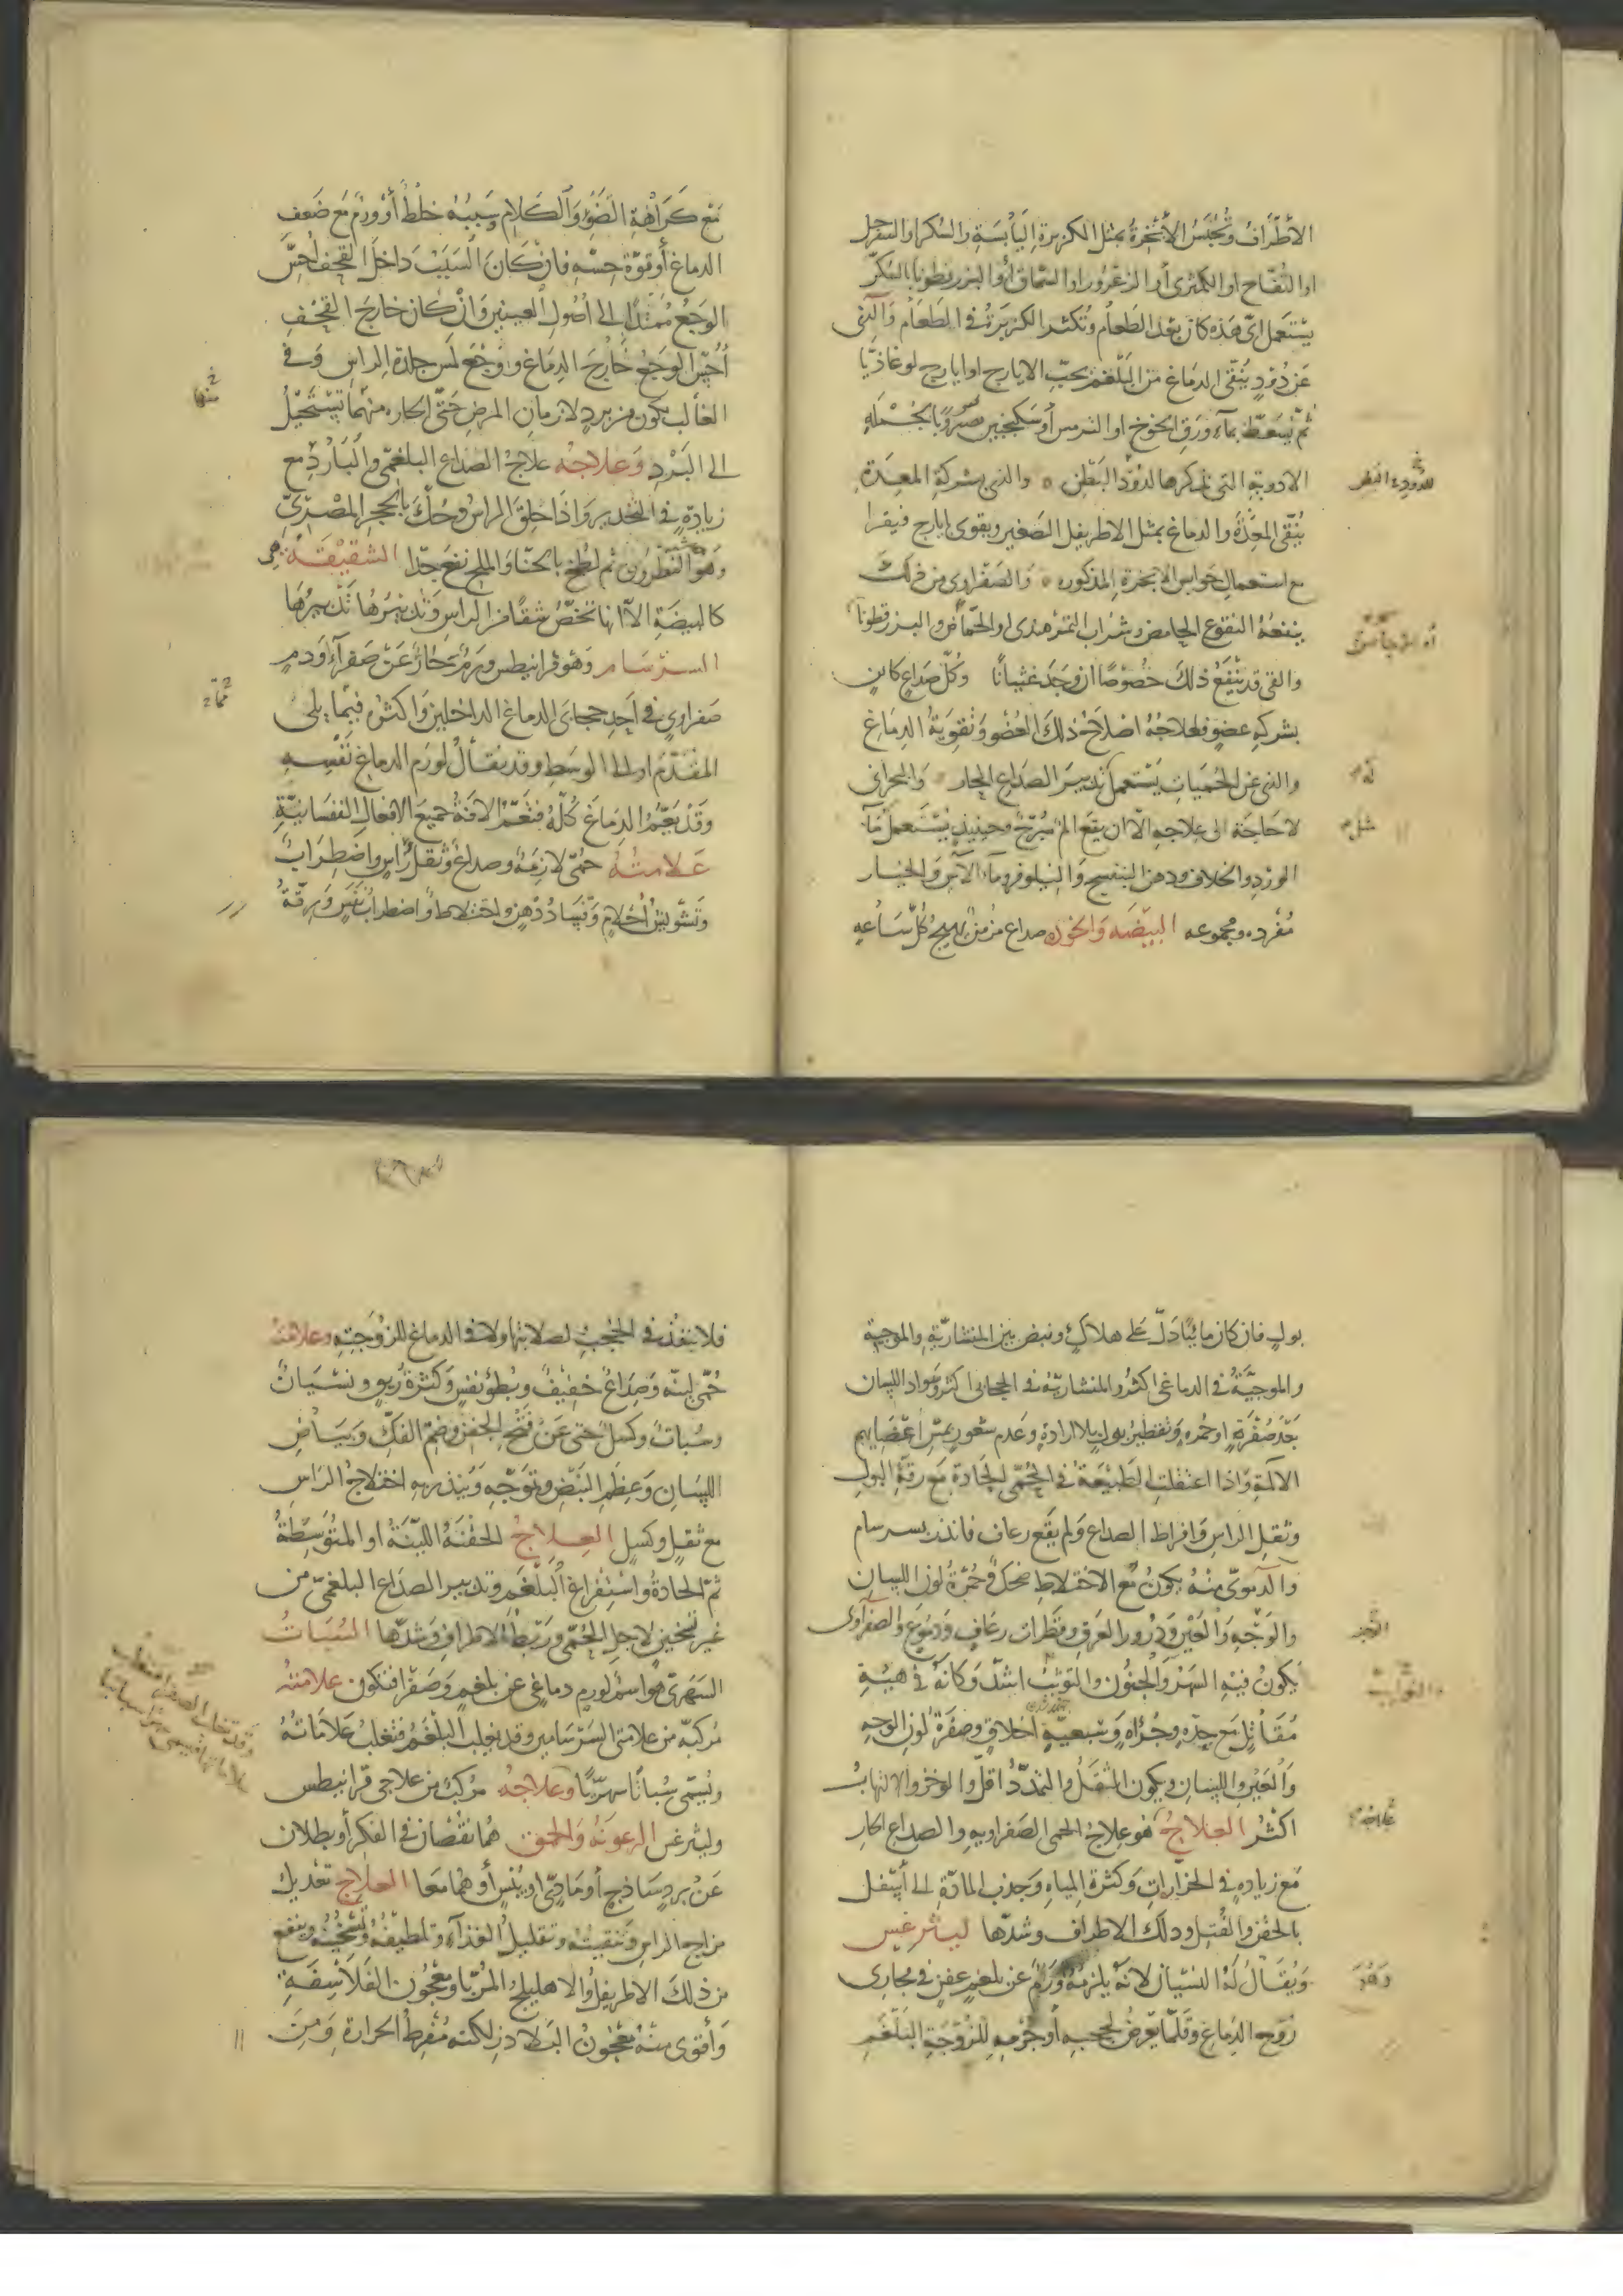 الأطراف وتحبس الأبخرة بمثل الكزبرة اليابسة والسكر او السفرجل
او التفاح او الكمثرى او الزعرور او السماق او البزرقطونا بالسكر
يستعمل اى هذه كان بعد الطعام وتكثر الكزبرة فى الطعام والذى
عن دود ينقى الدماغ من البلغم بحب الايارج او ايارج لوغاذيا
ثم يسعط بماء ورق الخوخ او الترمس أو سكبينج وبالجملة
الادوية التى نذكرها لدود البطن والذى بشركة المعدة
ينقى المعدة والدماغ بمثل الاطريفل الصغير ويقوى بايارج فيقرا
مع استعمال حوابس الابخرة المذكورة والصفراوى من ذلك
ينفعه النقوع الحامض وشراب التمر هندى او الحماض والبزرقطونا
والقى قد ينفع ذلك خصوصا ان وجد غثيانا وكل صداع كاين
بشركة عضو فعلاجه اصلاح ذلك العضو وتقوية الدماغ
والذى عن الحميات يستعمل تدبير الصداع الحار والبحرانى
لا حاجة الى علاجه الا ان يقع الم مبرح وحينيذ يستعمل ماء
الورد والخلاف ودهن البنفسج والنيلوفر وماء الآس والخيار
مفرده ومجموعه البيضه والخوذه صداع مزمن يهيج كل ساعه
مع كراهة الضوء والكلام وسببه خلط أو ورم مع ضعف
الدماغ أو قوة حسه فان كان السبب داخل القحف احس
الوجع ممتدا الى اصول العينين وان كان خارج القحف
أحس الوجع خارج الدماغ ووجع لمس جلدة الراس وفى
الغالب يكون من برد لازمان المرض حتى الحاره منهما تستحيل
الى البرد وعلاجه علاج الصداع البلغمى والبارد مع
زيادة فى التخدير واذا حلق الراس وحك بالحجر المصرى
وهو النطرون ثم لطخ بالحنا والملح نفع جدا الشقيقة هى
كالبيضة الا انها تخص شقا من الراس وتدبيرها تدبيرها
السرسام وهو قرانيطس ورم حار عن صفراء او دم
صفراوى فى احد حجابى الدماغ الداخلين واكثره فيما يلى
المقدم او الى الوسط وقد يقال لورم الدماغ نفسه
وقد يعم الدماغ كله فتعم الافة جميع الافعال النفسانية
علامته حمى لازمة وصداع وثقل راس واضطراب
وتشويش احلام وفساد ذهن واختلاط واضطراب نفس ورقة
منها
بول فان كان مائيا دل على هلاك ونبض بين المنشارية والموجية
والموجية فى الدماغى اكثر والمنشارية فى الحجابى اكثر وسواد اللسان
بعد صفرة او حمره وتقطير بول بلا ارادة وعدم شعور بمس اعضايهم
الالمة واذا اعتقلت الطبيعة فى الحمى الحادة مع رقة البول
وثقل الراس وافراط الصداع ولم يقع رعاف فانذر بسرسام
والدموى منه يكون مع الاختلاط ضحك وحمرة لون اللسان
والوجه والعين ودرور العرق وقطرات رعاف ودموع والصفراوى
يكون فيه السهر والجنون والتوثب اشد وكانه فى هيئة
مقاتل مع حده وجراه وسبعية اخلاق وصفرة لون الوجه
والعين واللسان ويكون الثقل والتمدد اقل والوخز والالتهاب
اكثر العلاج هو علاج الحمى الصفراويه والصداع الحار
مع زياده فى الخزازات وكثرة المياه وجذب المادة الى أسفل
بالحقن والفتل ودلك الاطراف وشدها ليثرغس
ويقال له النسيان لانه يلزمه ورم عن بلغم عفن فى مجارى
روح الدماغ وقلما يعرض لحجبه أو جرمه للزوجة البلغم
علاجه
وهو
فلا ينفذ فى الحجب لصلابتها ولا فى الدماغ للزوجته وعلامته
حمى لينه وصداع خفيف وبطؤ نفس وكثرة ريق ونسيان
وسبات وكسل حتى عن فتح الجفن وضم الفك وبياض
اللسان وعظم النبض وتموجه وينذر به اختلاج الراس
مع ثقل وكسل العلاج الحقنة اللينة او المتوسطة
ثم الحادة واستفراغ البلغم وتدبير الصداع البلغمى من
غير تسخين لاجل الحمى وربط الاطراف وشدها السبات
السهرى هو اسم لورم دماغى عن بلغم وصفرا فتكون علامته
مركبه من علامتى السرسامين وقد يغلب البلغم فتغلب علاماته
ويسمى سباتا سهريا وعلاجه مركب من علاجى قرانيطس
وليثرغس الرعونة والحمق هما نقصان فى الفكر أو بطلان
عن برد ساذج أو مادى او يبس أو هما معا العلاج تعديل
مزاج الراس وتنقيته وتقليل الغذاء وتلطيفه وتسخينه وينفع
من ذلك الاطريفل والاهليلج المربا ومعجون الفلاسفة
وأقوى منه معجون البلاذر لكنه مفرط الحرارة ومن